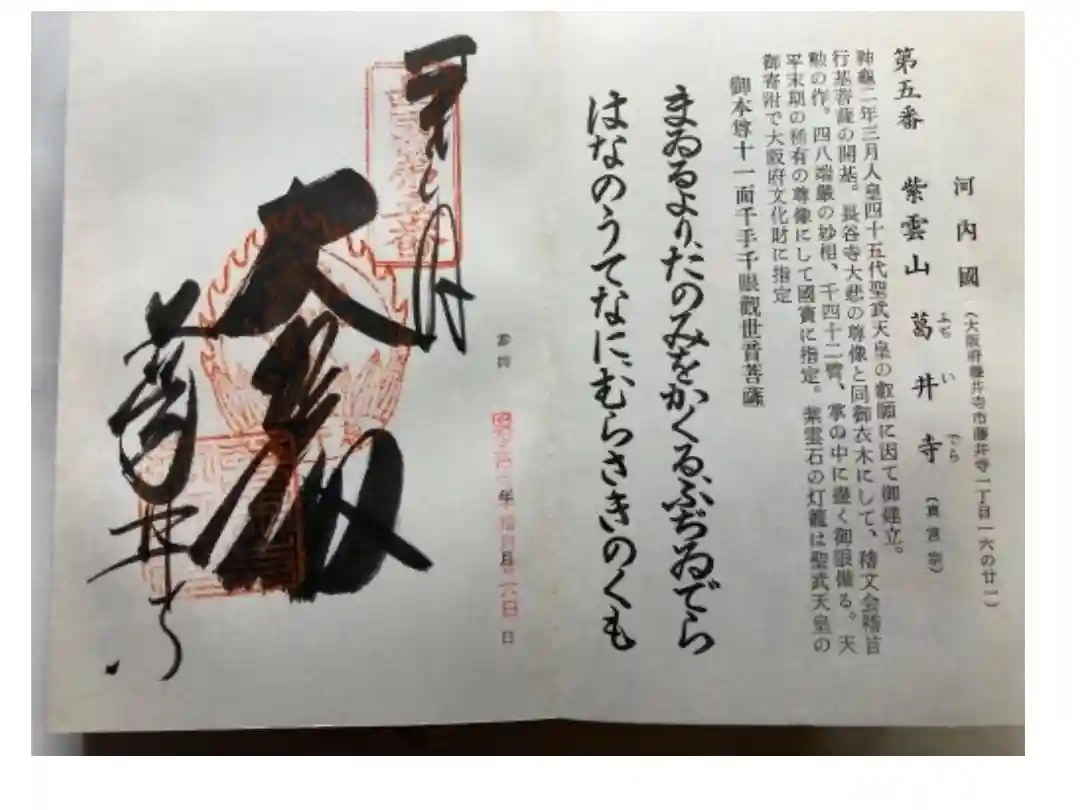 河內國 (大阪府藤井寺市藤井寺一丁目一六の廿一)
第五番 紫雲山 葛井寺 (真言宗)
ふぢ い でら
神龜二年三月人皇四十五代聖武天皇の叡願に因て御建立。
行基菩薩の開基。長谷寺大悲の尊像と同御衣木にして、稽文会稽旨
勲の作。四八端嚴の妙相、千四十二臂、掌の中に盡く御眼備る。天
平末期の稀有の尊像にして國寶に指定。紫雲石の灯籠は聖武天皇の
御寄附で大阪府文化財に指定
御本尊十一面千手千眼觀世音菩薩
まゐるよりたのみをかくるふぢゐでら
はなのうてなにむらさきのくも
參拜 年 月 日
大悲殿
葛井寺